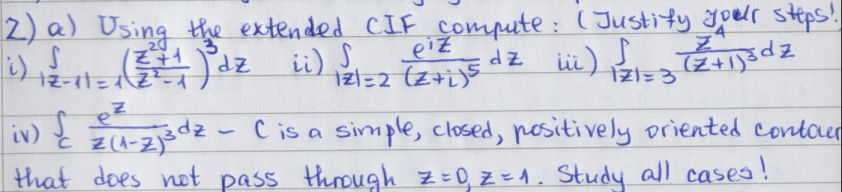 2) a) Using the extended CIF compute: (Justify your steps!
i) ∫_{|z-1|=1} ((z²+1)/(z²-1))³ dz  ii) ∫_{|z|=2} e^{iz}/(z+i)⁵ dz  iii) ∫_{|z|=3} z⁴/(z+1)³ dz
iv) ∫_C e^z/(z(1-z)³) dz - C is a simple, closed, positively oriented contour
that does not pass through z=0, z=1. Study all cases!